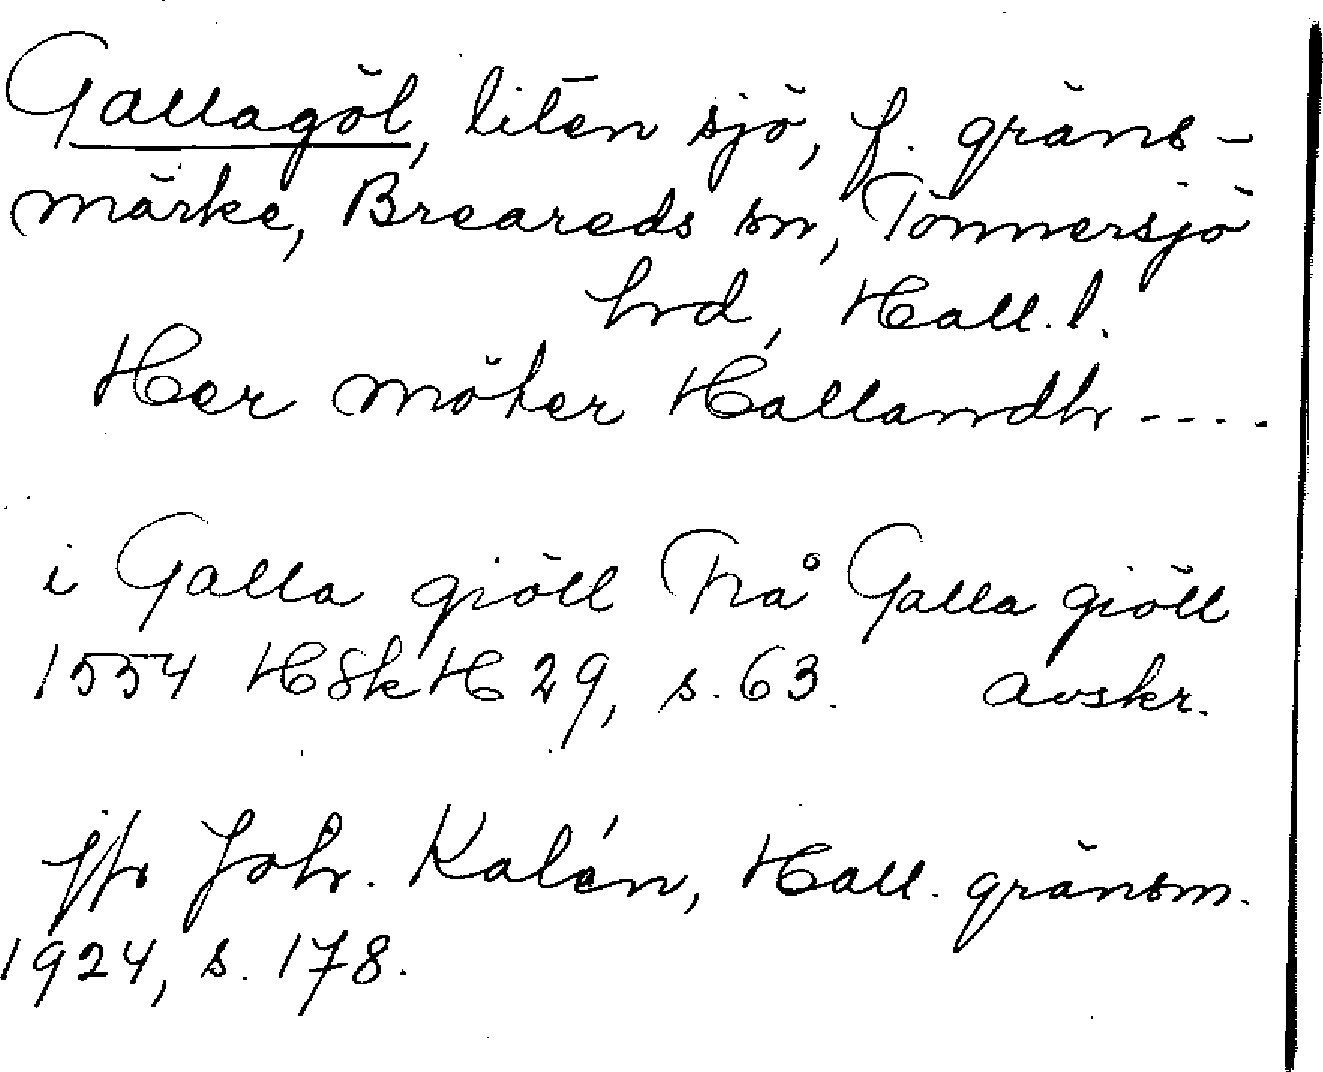 Gallagöl, liten sjö, f. gräns-
märke, Breareds sn, Tönnersjö
hrd, Hall. l.
Her möter Hallandh ----
i Galla giöll Frå Galla giöll
1554 HSkH 29, s. 63. avskr.
jfr Joh. Kalén, Hall. gränsm.
1924, s. 178.